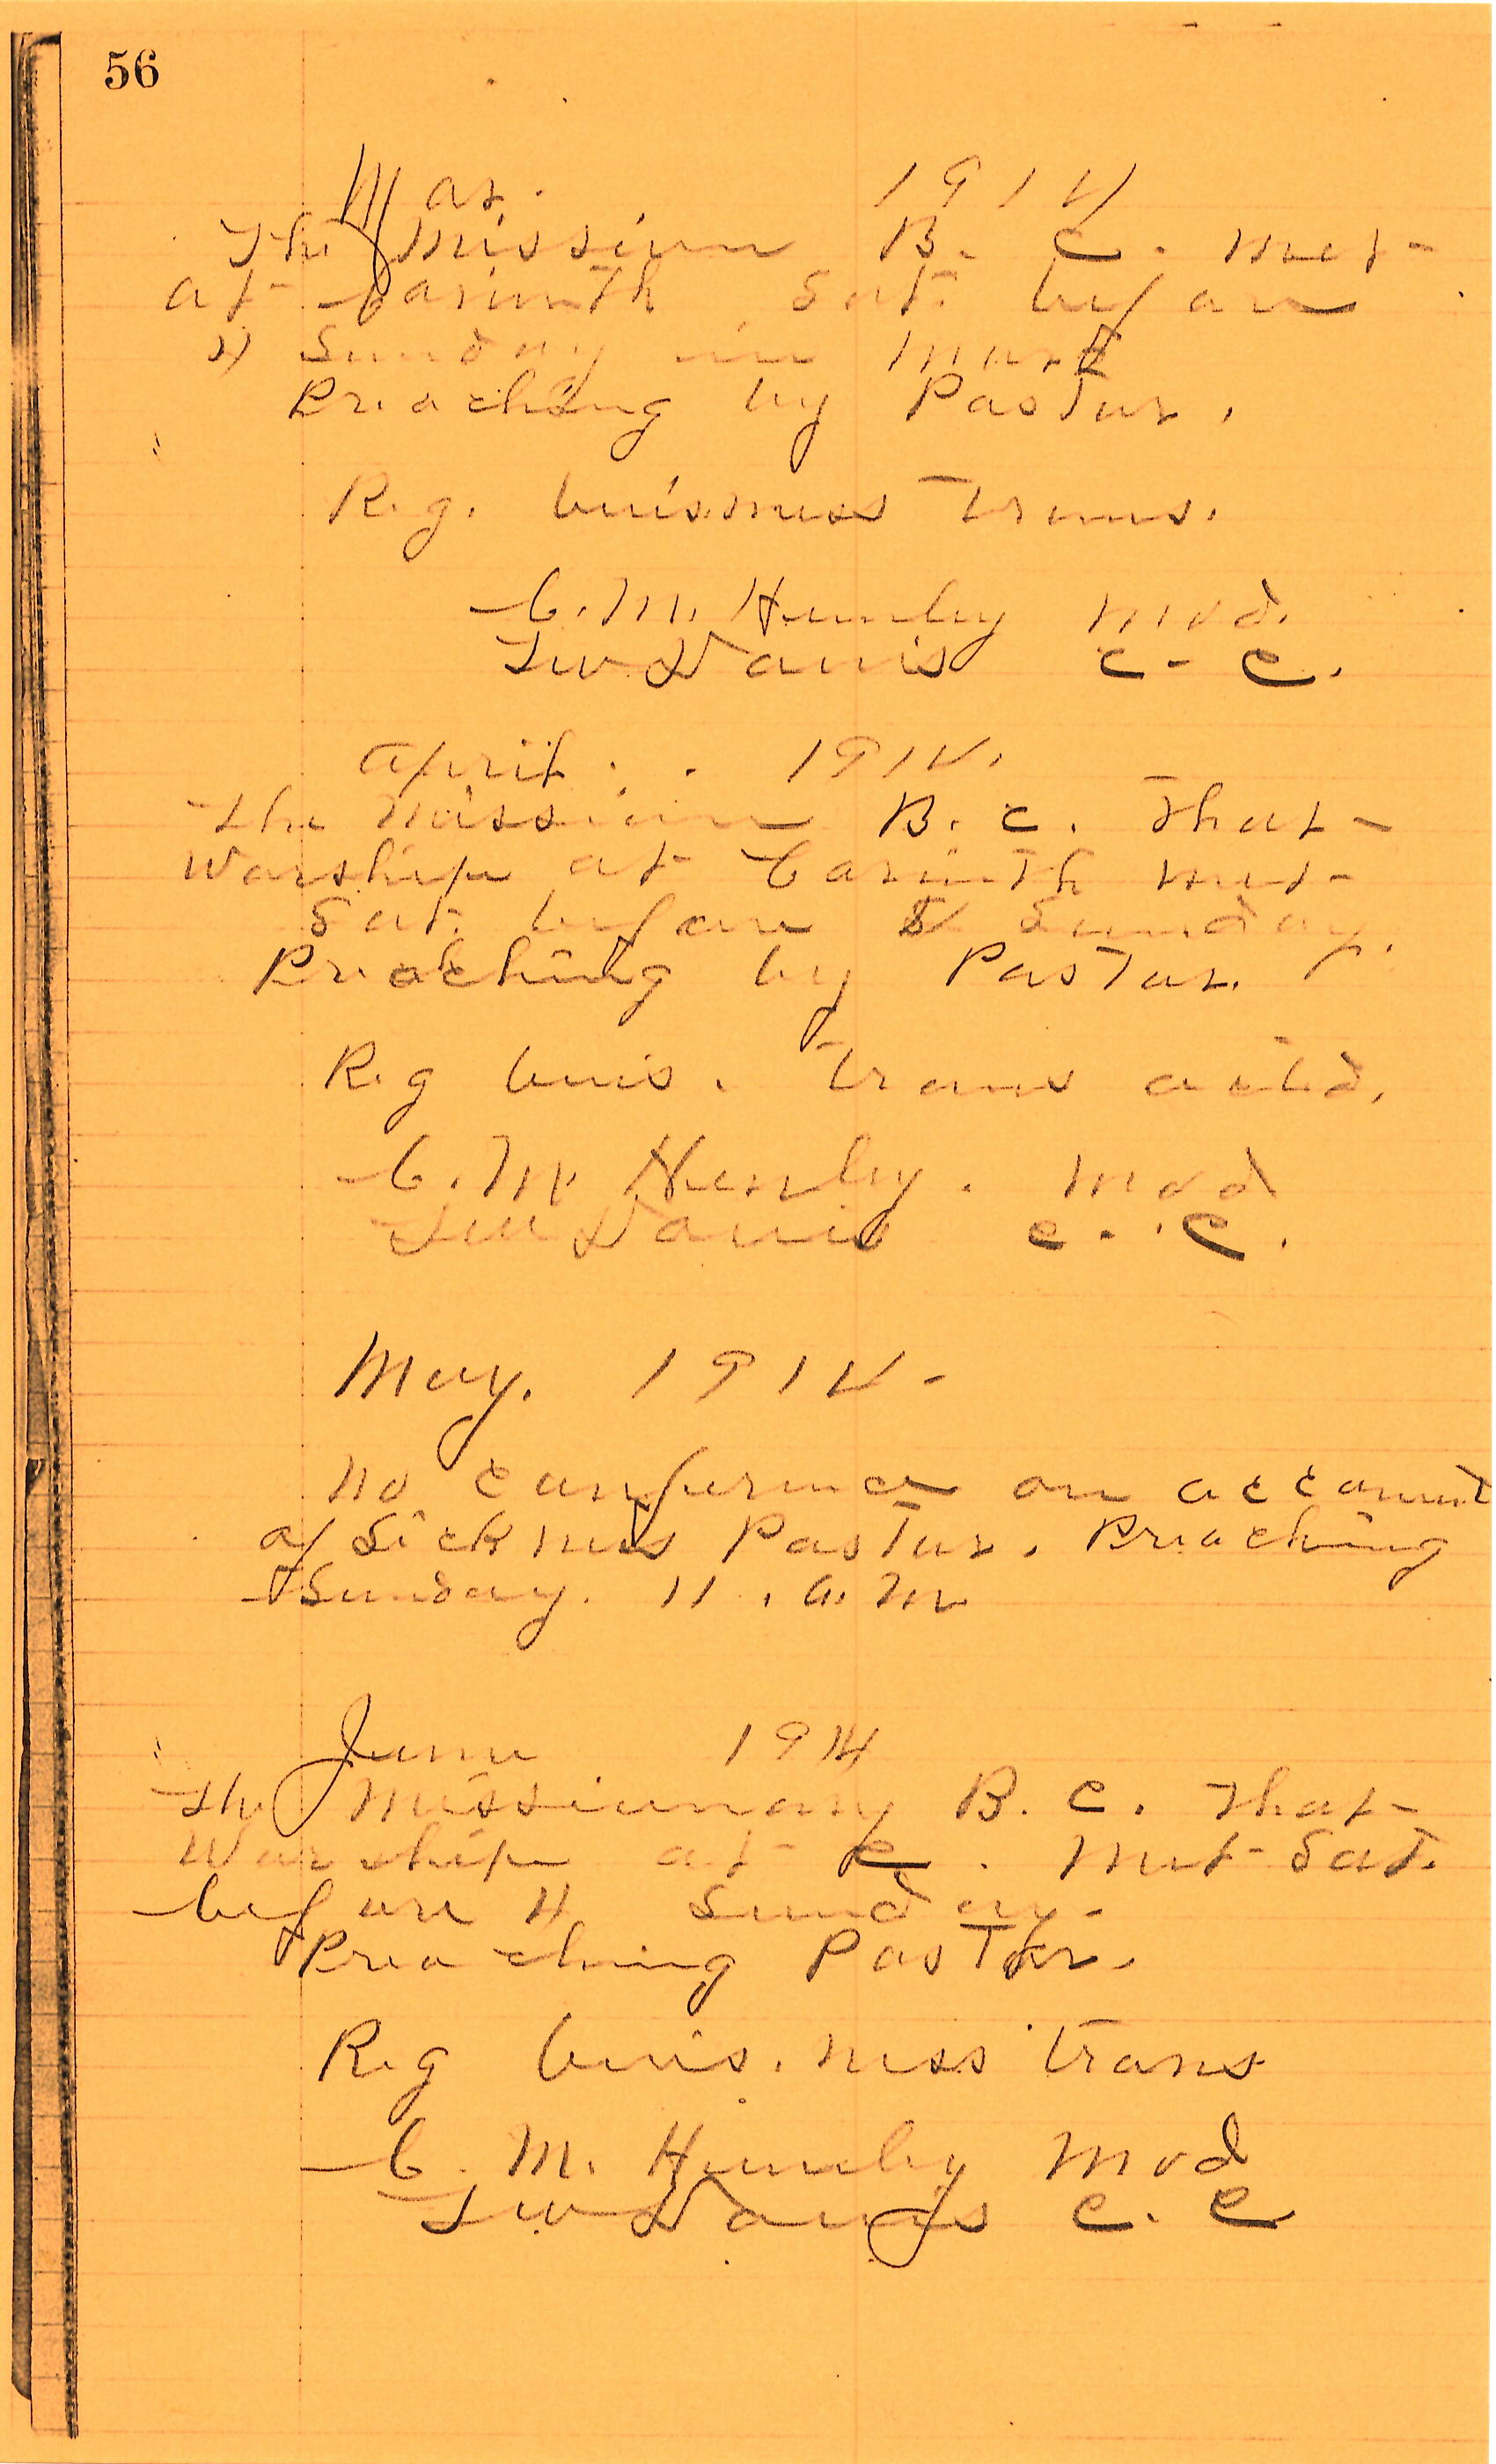 56
Mar. 1914
The mission B. C. met
at Corinth Sat. before
4 Sunday in
Preaching by Pastor.
Reg. buisness trans.
C. M. Hunley Mod.
Davis C. C.
April. 1914.
The mission B. C. That
Worship at Corinth met
Sat. before 4 Sunday.
Preaching by Pastor.
Reg buis. trans acted.
C. M Hunley. Mod
Davis C. C.
May. 1914
no conference on account
of Sickness Pastor. Preaching
Sunday. 11. a. m
June 1914
The Missionary B. C. That
Worship at C. met Sat.
before 4 Sunday.
Preaching Pastor.
Reg buis. ness trans
C. M. Hunley Mod
Davis C. C